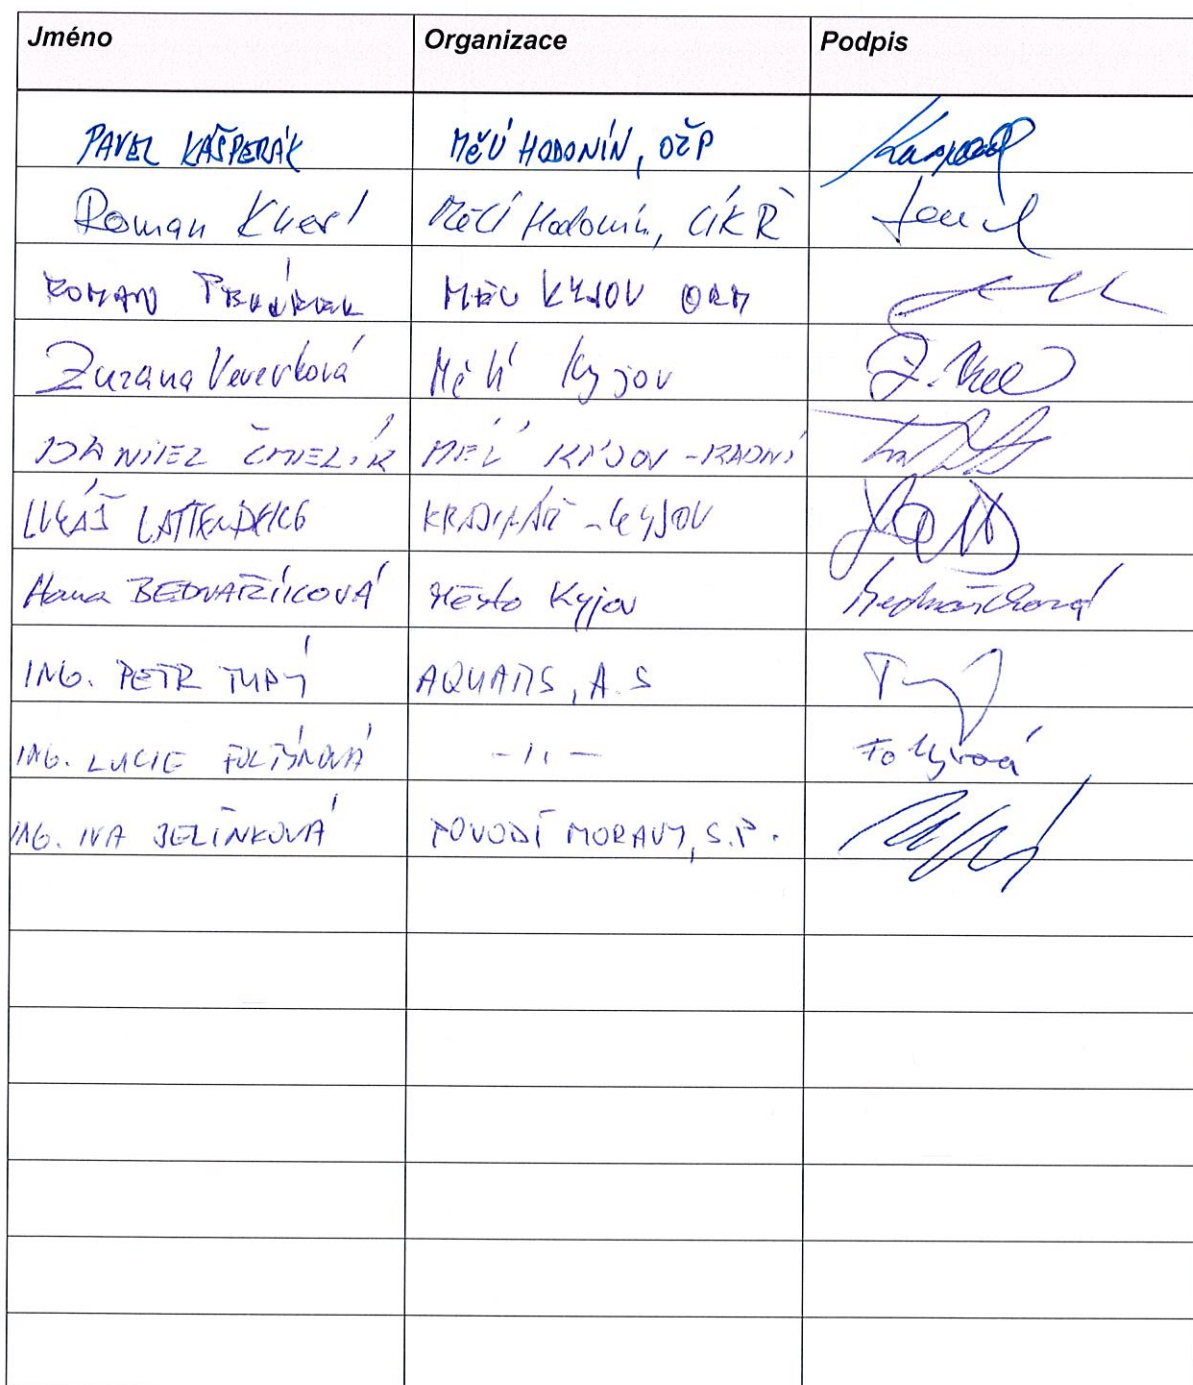 Jméno Organizace Podpis
PAVEL KAŠPERÁK MěÚ HODONÍN, OŽP
Roman MěÚ Hodonín,
ROMAN MĚU KYJOV ORM
Zuzana Veverková MěÚ Kyjov
DANIEL ČMELÍK MĚÚ KYJOV - RADNÍ
LUKÁŠ LATTENBERG - KYJOV
Hana BEDNAŘÍKOVÁ Město Kyjov Bednaříková
ING. PETR TUPÝ AQUATIS, A.S
ING. LUCIE FOLTÝNOVÁ -11- Foltýnová
ING. IVA JELÍNKOVÁ POVODÍ MORAVY, S.P.